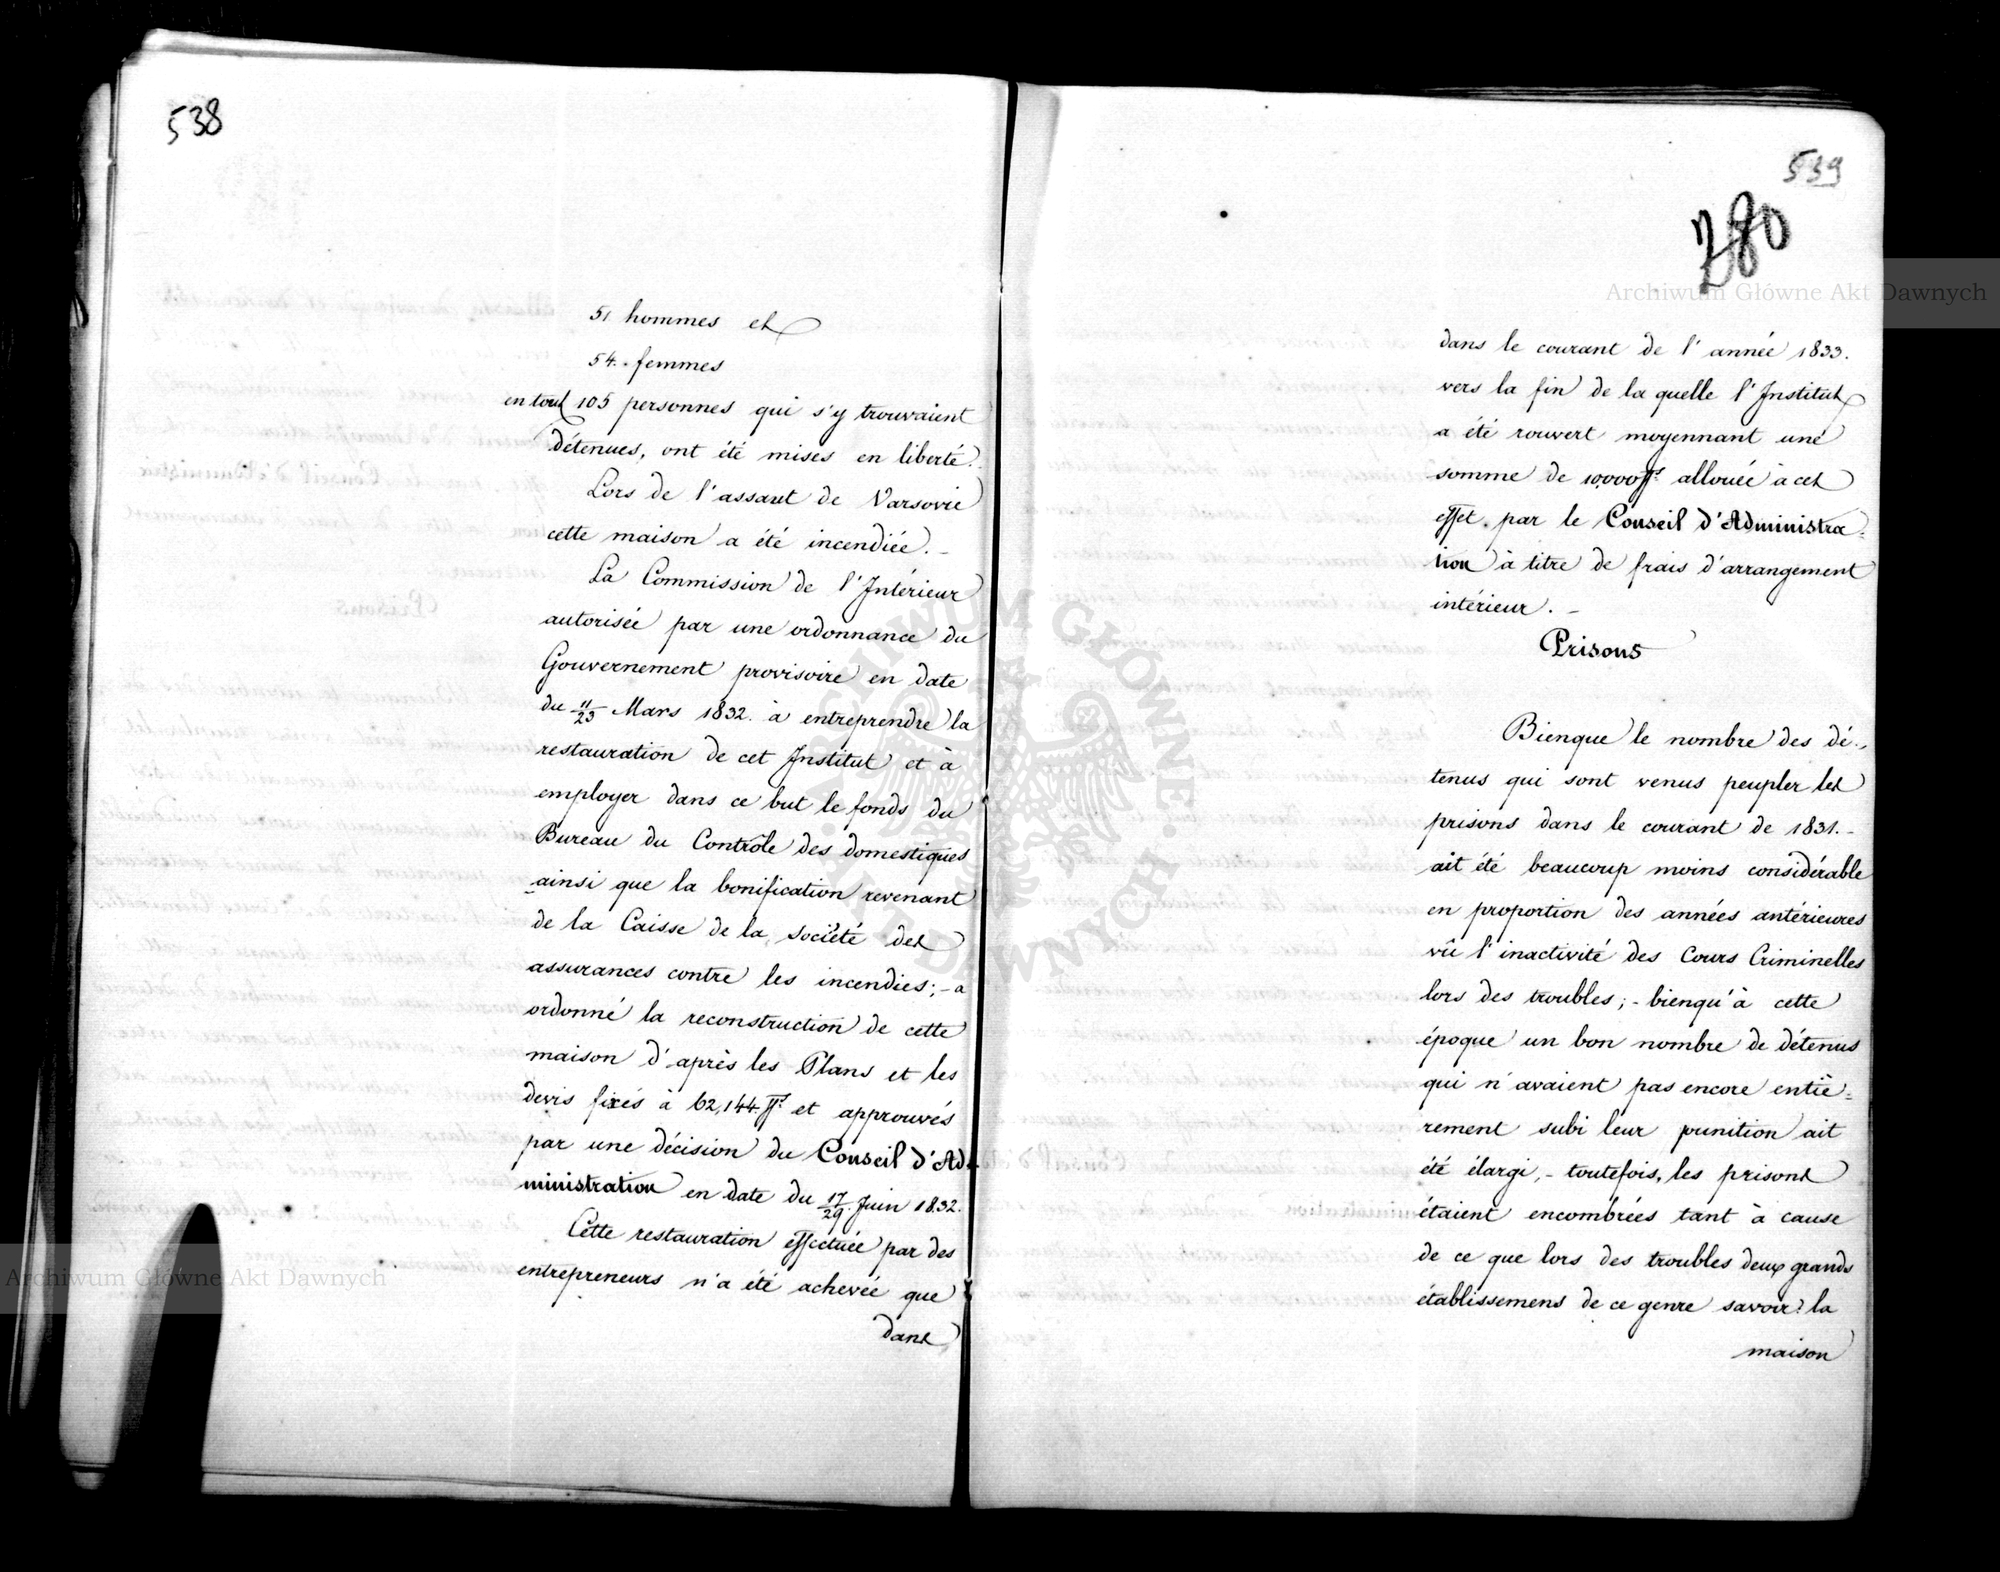 538
51 hommes et
54. femmes
en tout 105 personnes qui s'y trouvaient
détenues, ont été mises en liberté.
Lors de l'assaut de Varsovie
cette maison a été incendiée. -
La Commission de l'Intérieur
autorisée par une ordonnance du
Gouvernement provisoire en date
du 11/23 Mars 1832. à entreprendre la
restauration de cet Institut et à
employer dans ce but le fonds du
Bureau du Contrôle des domestiques
ainsi que la bonification revenant
de la Caisse de la Société des
assurances contre les incendies; - a
ordonné la reconstruction de cette
maison d'après les Plans et les
devis fixés à 62,144 fls et approuvés
par une décision du Conseil d'Ad-
ministration en date du 17/29. Juin 1832.
Cette restauration effectuée par des
entrepreneurs n'a été achevée que
dans
539
280
dans le courant de l'année 1833.
vers la fin de la quelle l'Institut
a été rouvert moyennant une
somme de 10,000 fls allouée à cet
effet par le Conseil d'Administra=
tion à titre de frais d'arrangement
intérieur. -
Prisons
Bienque le nombre des dé-
tenus qui sont venus peupler les
prisons dans le courant de 1831. -
ait été beaucoup moins considérable
en proportion des années antérieures
vû l'inactivité des Cours Criminelles
lors des troubles; - bienqu'à cette
époque un bon nombre de détenus
qui n'avaient pas encore entiè=
rement subi leur punition ait
été élargi, - toutefois, les prisons
étaient encombrées tant à cause
de ce que lors des troubles deux grands
établissemens de ce genre savoir: la
maison
Archiwum Główne Akt Dawnych
Archiwum Główne Akt Dawnych
ARCHIWUM GŁÓWNE · AKT DAWNYCH ·